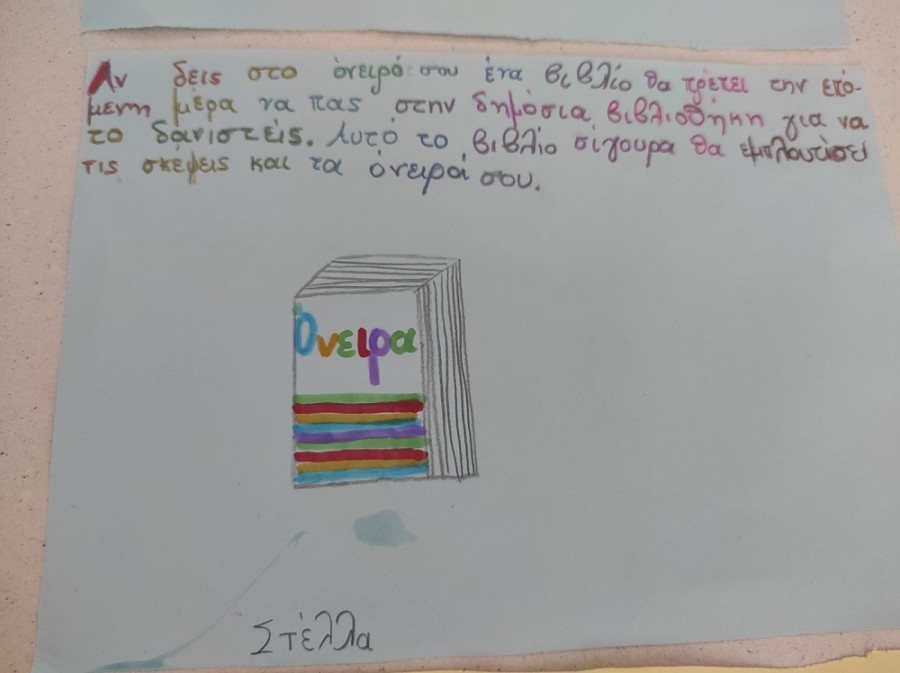 Αν δεις στο όνειρό σου ένα βιβλίο θα πρέπει την επό-
μενη μέρα να πας στην δημόσια βιβλιοθήκη για να
το δανιστείς. Αυτό το βιβλίο σίγουρα θα εμπλουτίσει
τις σκέψεις και τα όνειρά σου.
Όνειρα
Στέλλα